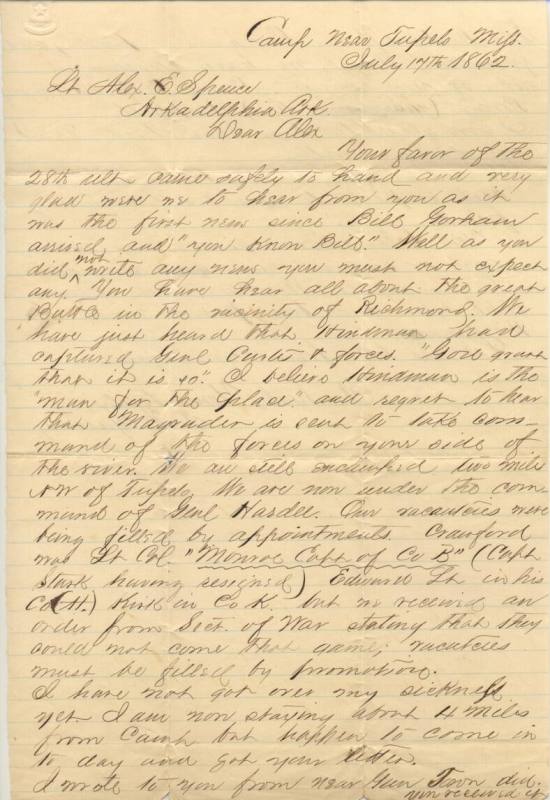 Camp Near Tupelo Miss.
July 17th 1862.
Lt Alex. E. Spence
Arkadelphia Ark
Dear Alex
Your favor of the
28th ult came safely to hand and very
glad were we to hear from you as it
was the first news since Bill Gorham
arrived, and "you know Bill." Well as you
did not write any news you must not expect
any. You have hear all about the great
Battle in the vicinity of Richmond. We
have just heard that Hindman had
captured Genl Curtis & forces. "God grant
that it is so". I believe Hindman is the
"man for the place" and regret to hear
that Magruder is sent to take com-
mand of the forces on your side of
the river. We are still encamped two mile
NW of Tupelo. We are now under the com
mand of Genl Hardee. Our vacancies were
being filled by appointments. Crawford
was Lt Col "Monroe Capt of Co B" (Capt
Stark having resigned) Edward Lt in his
Co (H.) Kirk in Co K. but we received an
order from Sect. of War stating that they
could not come that game; vacancies
must be filled by promotion.
I have not got over my sickness
yet. I am now staying about 4 miles
from Camp but happen to come in
to day and got your letter.
I wrote to you from near Gun Town did
you received it